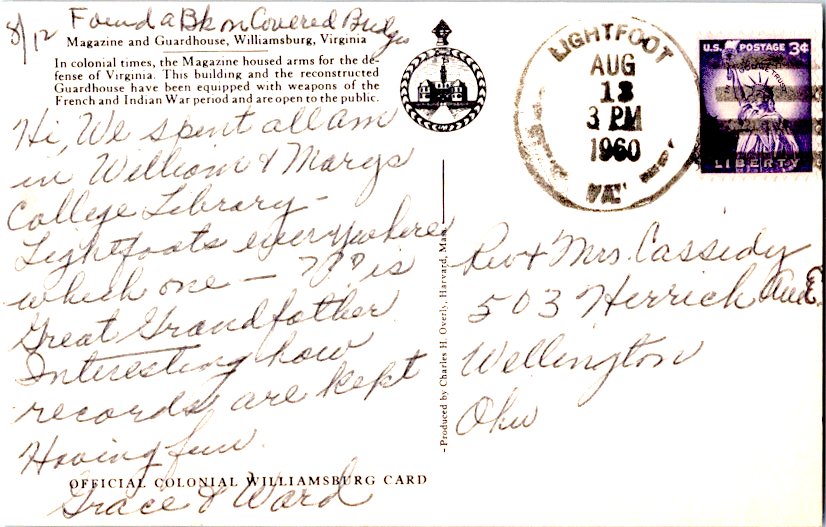 8/12 Found a Bk on Covered Bridges
Magazine and Guardhouse, Williamsburg, Virginia
In colonial times, the Magazine housed arms for the de-
fense of Virginia. This building and the reconstructed
Guardhouse have been equipped with weapons of the
French and Indian War period and are open to the public.
Hi, We spent all am
in William & Marys
College Library -
Lightfoots everywhere
which one - ??? is
Great Grandfather
Interesting how
records are kept
Having fun.
Grace & Ward
OFFICIAL COLONIAL WILLIAMSBURG CARD
- Produced by Charles H. Overly, Harvard, Mass. -
LIGHTFOOT
AUG
13
3 PM
1960
VA.
U.S. POSTAGE 3¢
LIBERTY
Rev & Mrs. Cassidy
503 Herrick Ave E.
Wellington
Ohio